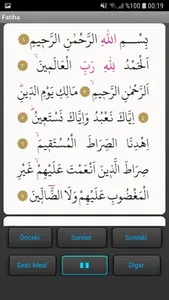 00:19
Fatiha
بِسْمِ اللهِ الرَّحْمٰنِ الرَّحِيمِ ﴿١﴾
اَلْحَمْدُ لِلّٰهِ رَبِّ الْعَالَمِينَۙ ﴿٢﴾
اَلرَّحْمٰنِ الرَّحِيمِۙ ﴿٣﴾ مَالِكِ يَوْمِ الدِّينِۜ
﴿٤﴾ اِيَّاكَ نَعْبُدُ وَاِيَّاكَ نَسْتَعِينُۜ ﴿٥﴾
اِهْدِنَا الصِّرَاطَ الْمُسْتَقِيمَۙ ﴿٦﴾
صِرَاطَ الَّذِينَ اَنْعَمْتَ عَلَيْهِمْۙ غَيْرِ
الْمَغْضُوبِ عَلَيْهِمْ وَلَا الضَّٓالِّينَ ﴿٧﴾
Önceki Sureler Sonraki
Sesli Meal Diger